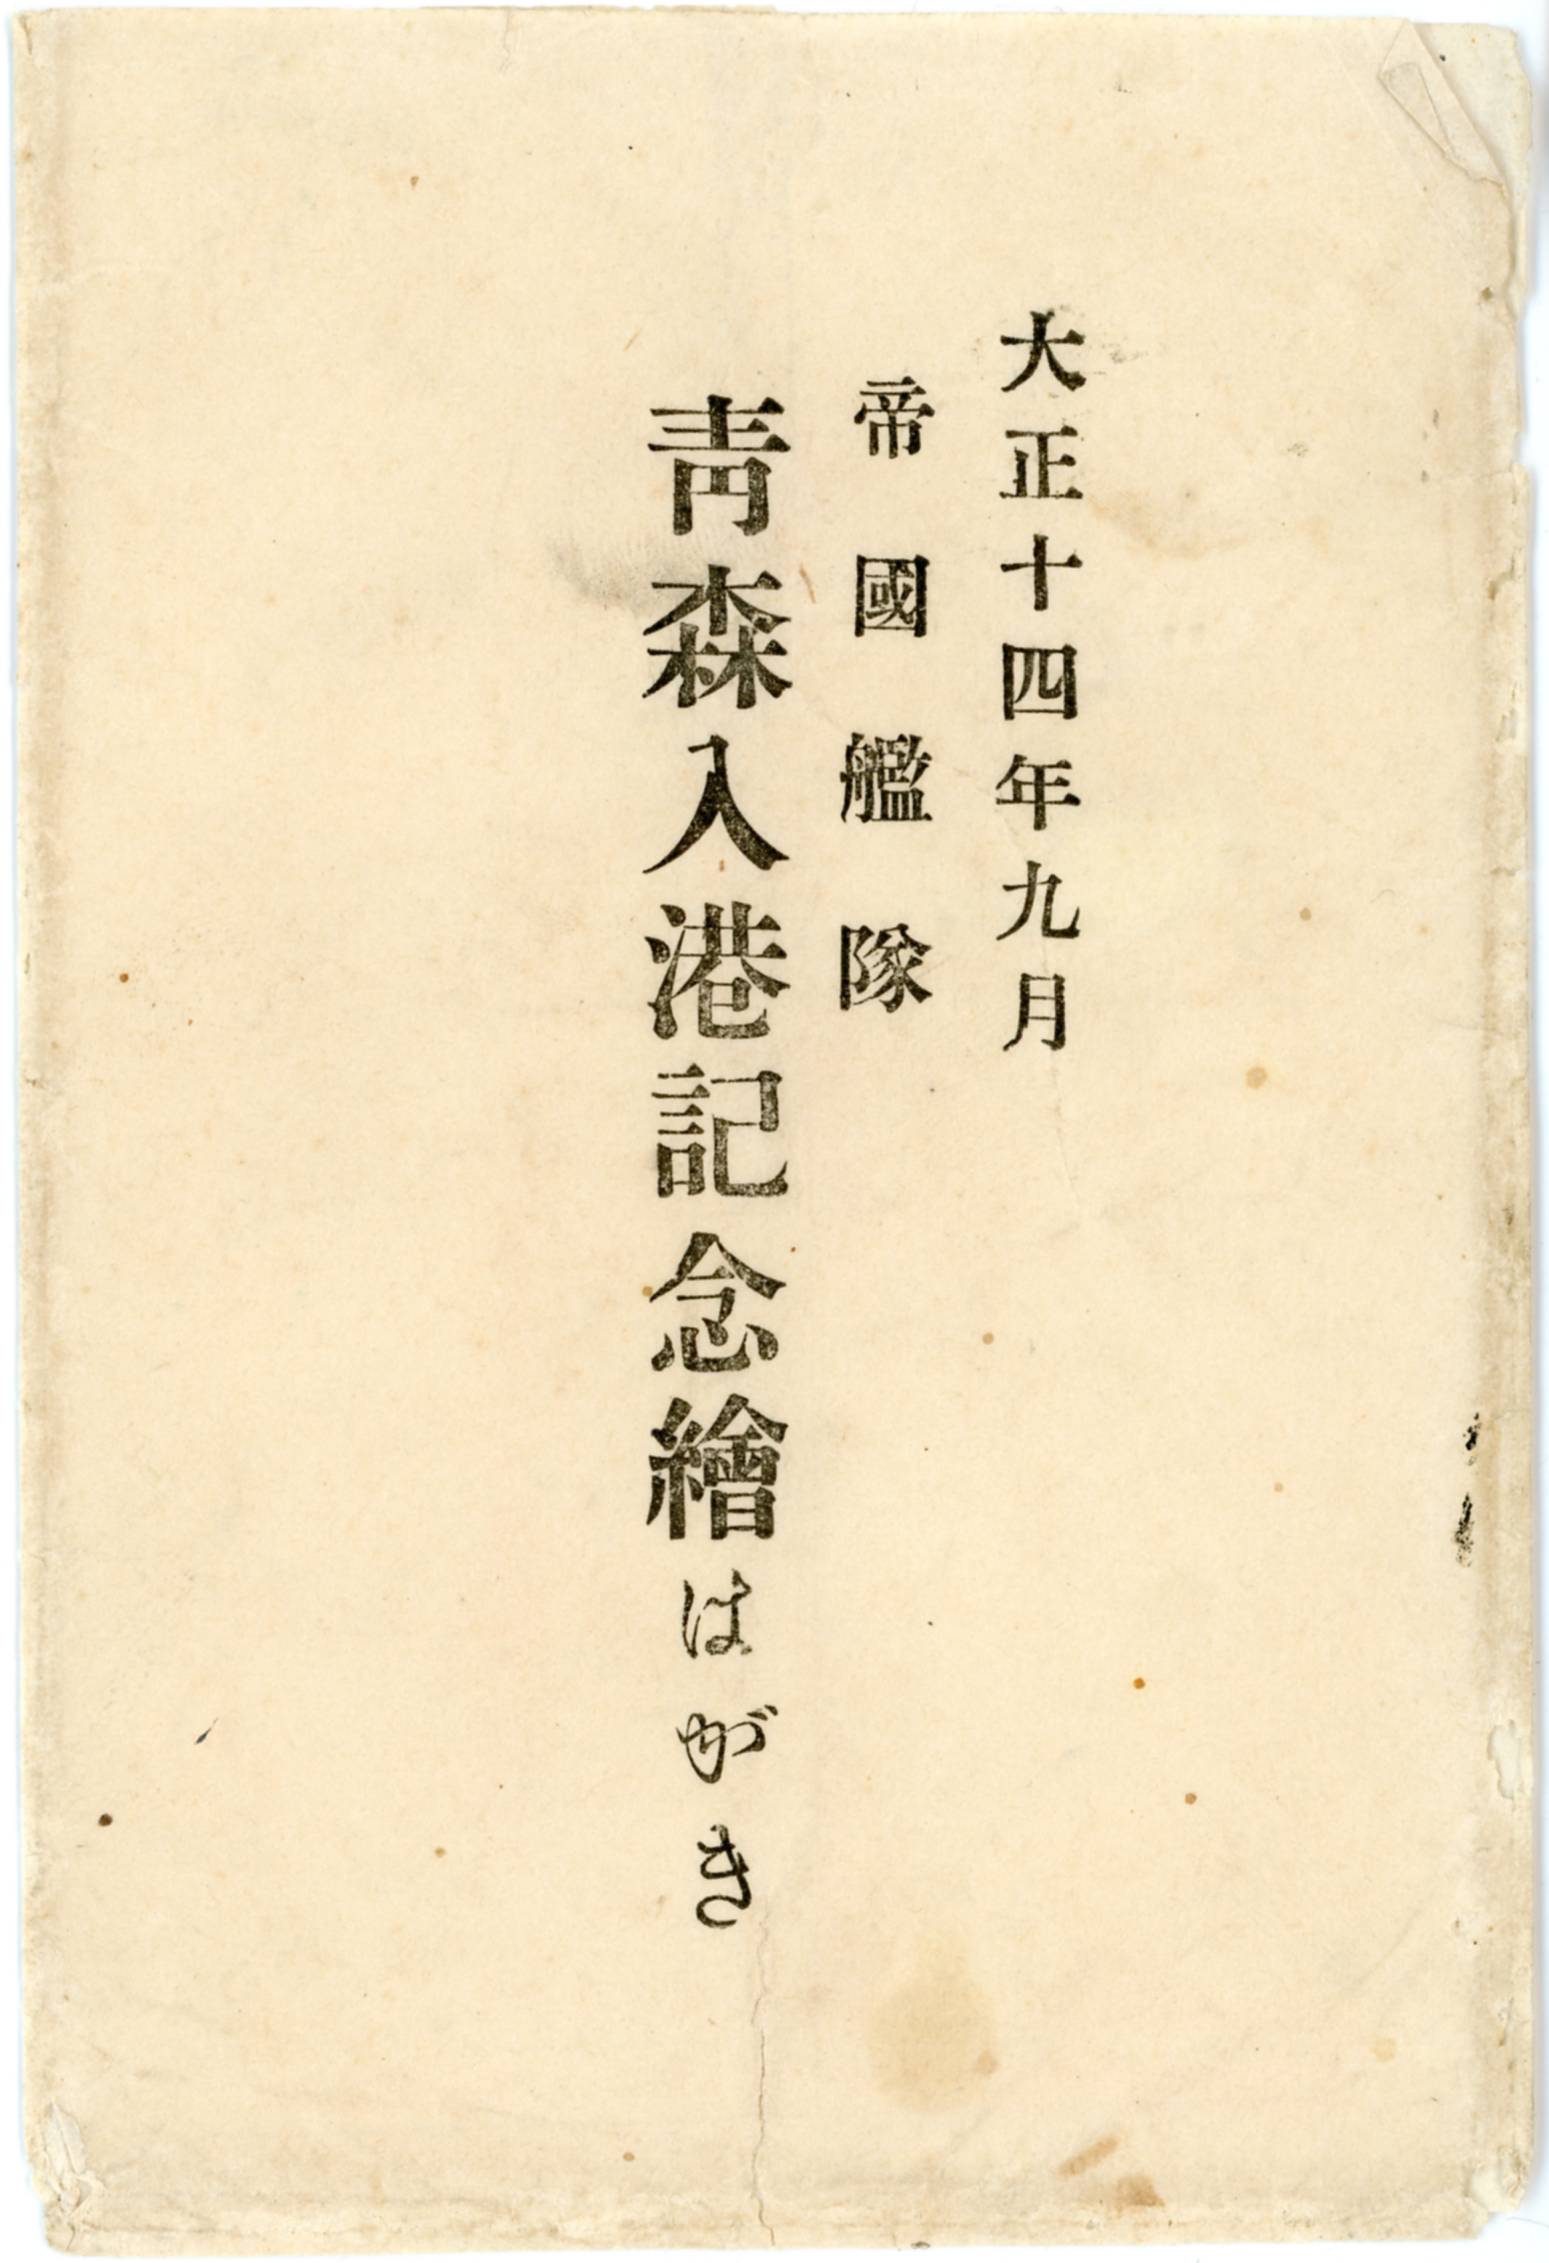 大正十四年九月
帝國艦隊
靑森入港記念繪はがき